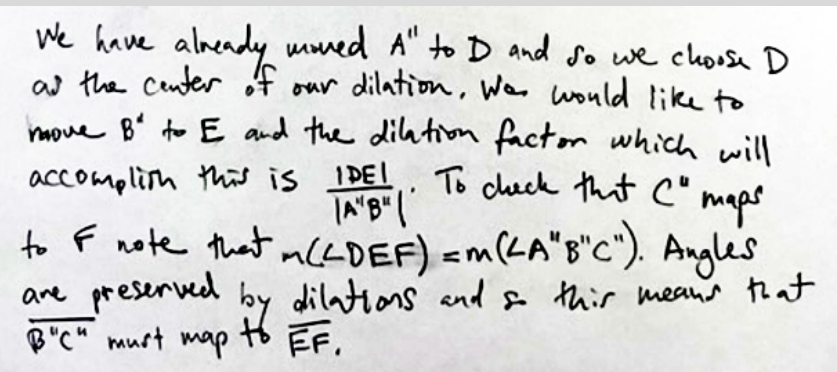 We have already moved A" to D and so we choose D
as the center of our dilation. We would like to
move B" to E and the dilation factor which will
accomplish this is |DE| / |A"B"|. To check that C" maps
to F note that m(∠DEF) = m(∠A"B"C"). Angles
are preserved by dilations and so this means that
B"C" must map to EF.